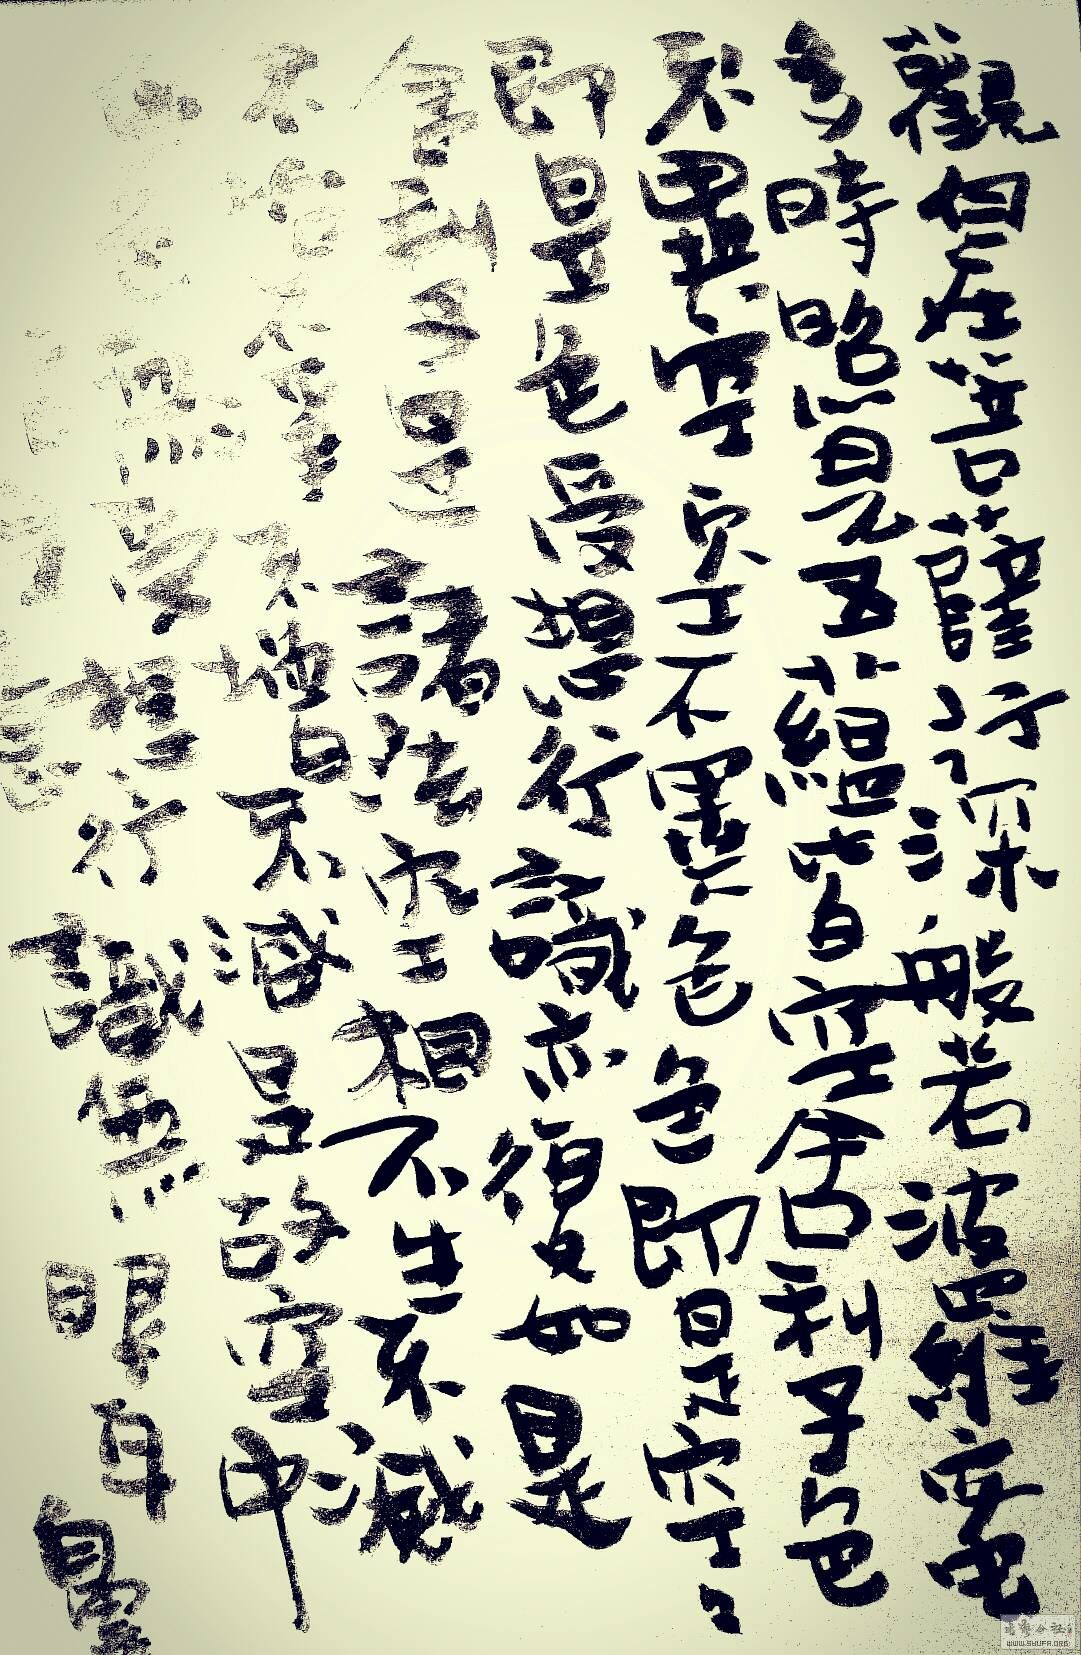 觀自在菩薩行深般若波羅蜜
多時照見五蘊皆空舍利子色
不異空空不異色色即是空〻
即是色受想行識亦復如是
舍利子是諸法空相不生不滅
不垢不淨不增不減是故空中
無色無受想行識無眼耳鼻
舌身意
WWW.SHUFA.ORG